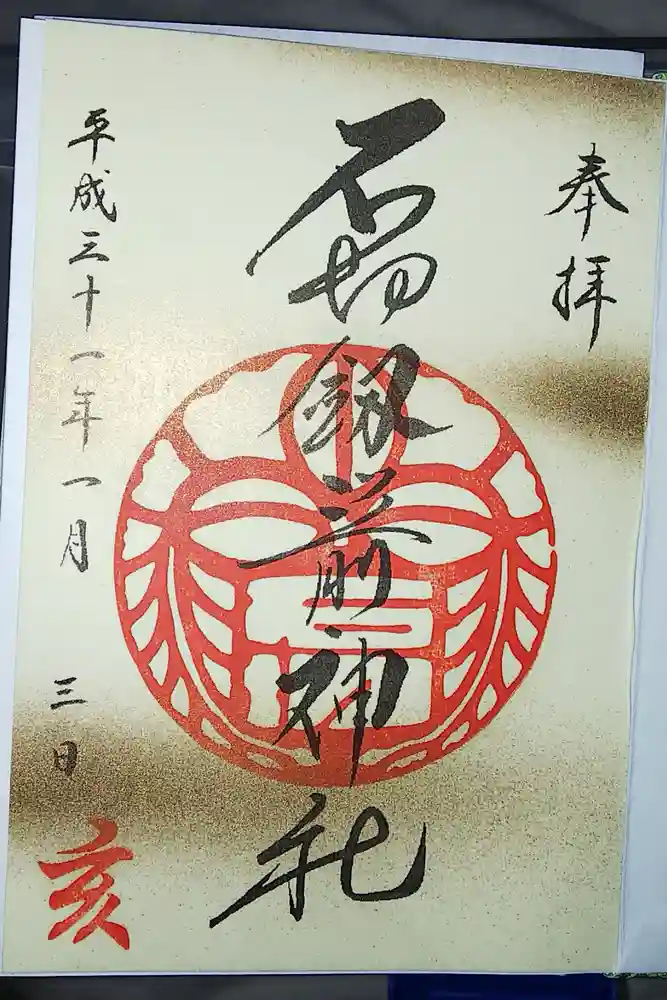 奉拝
石切釼箭神社
平成三十一年一月三日
亥